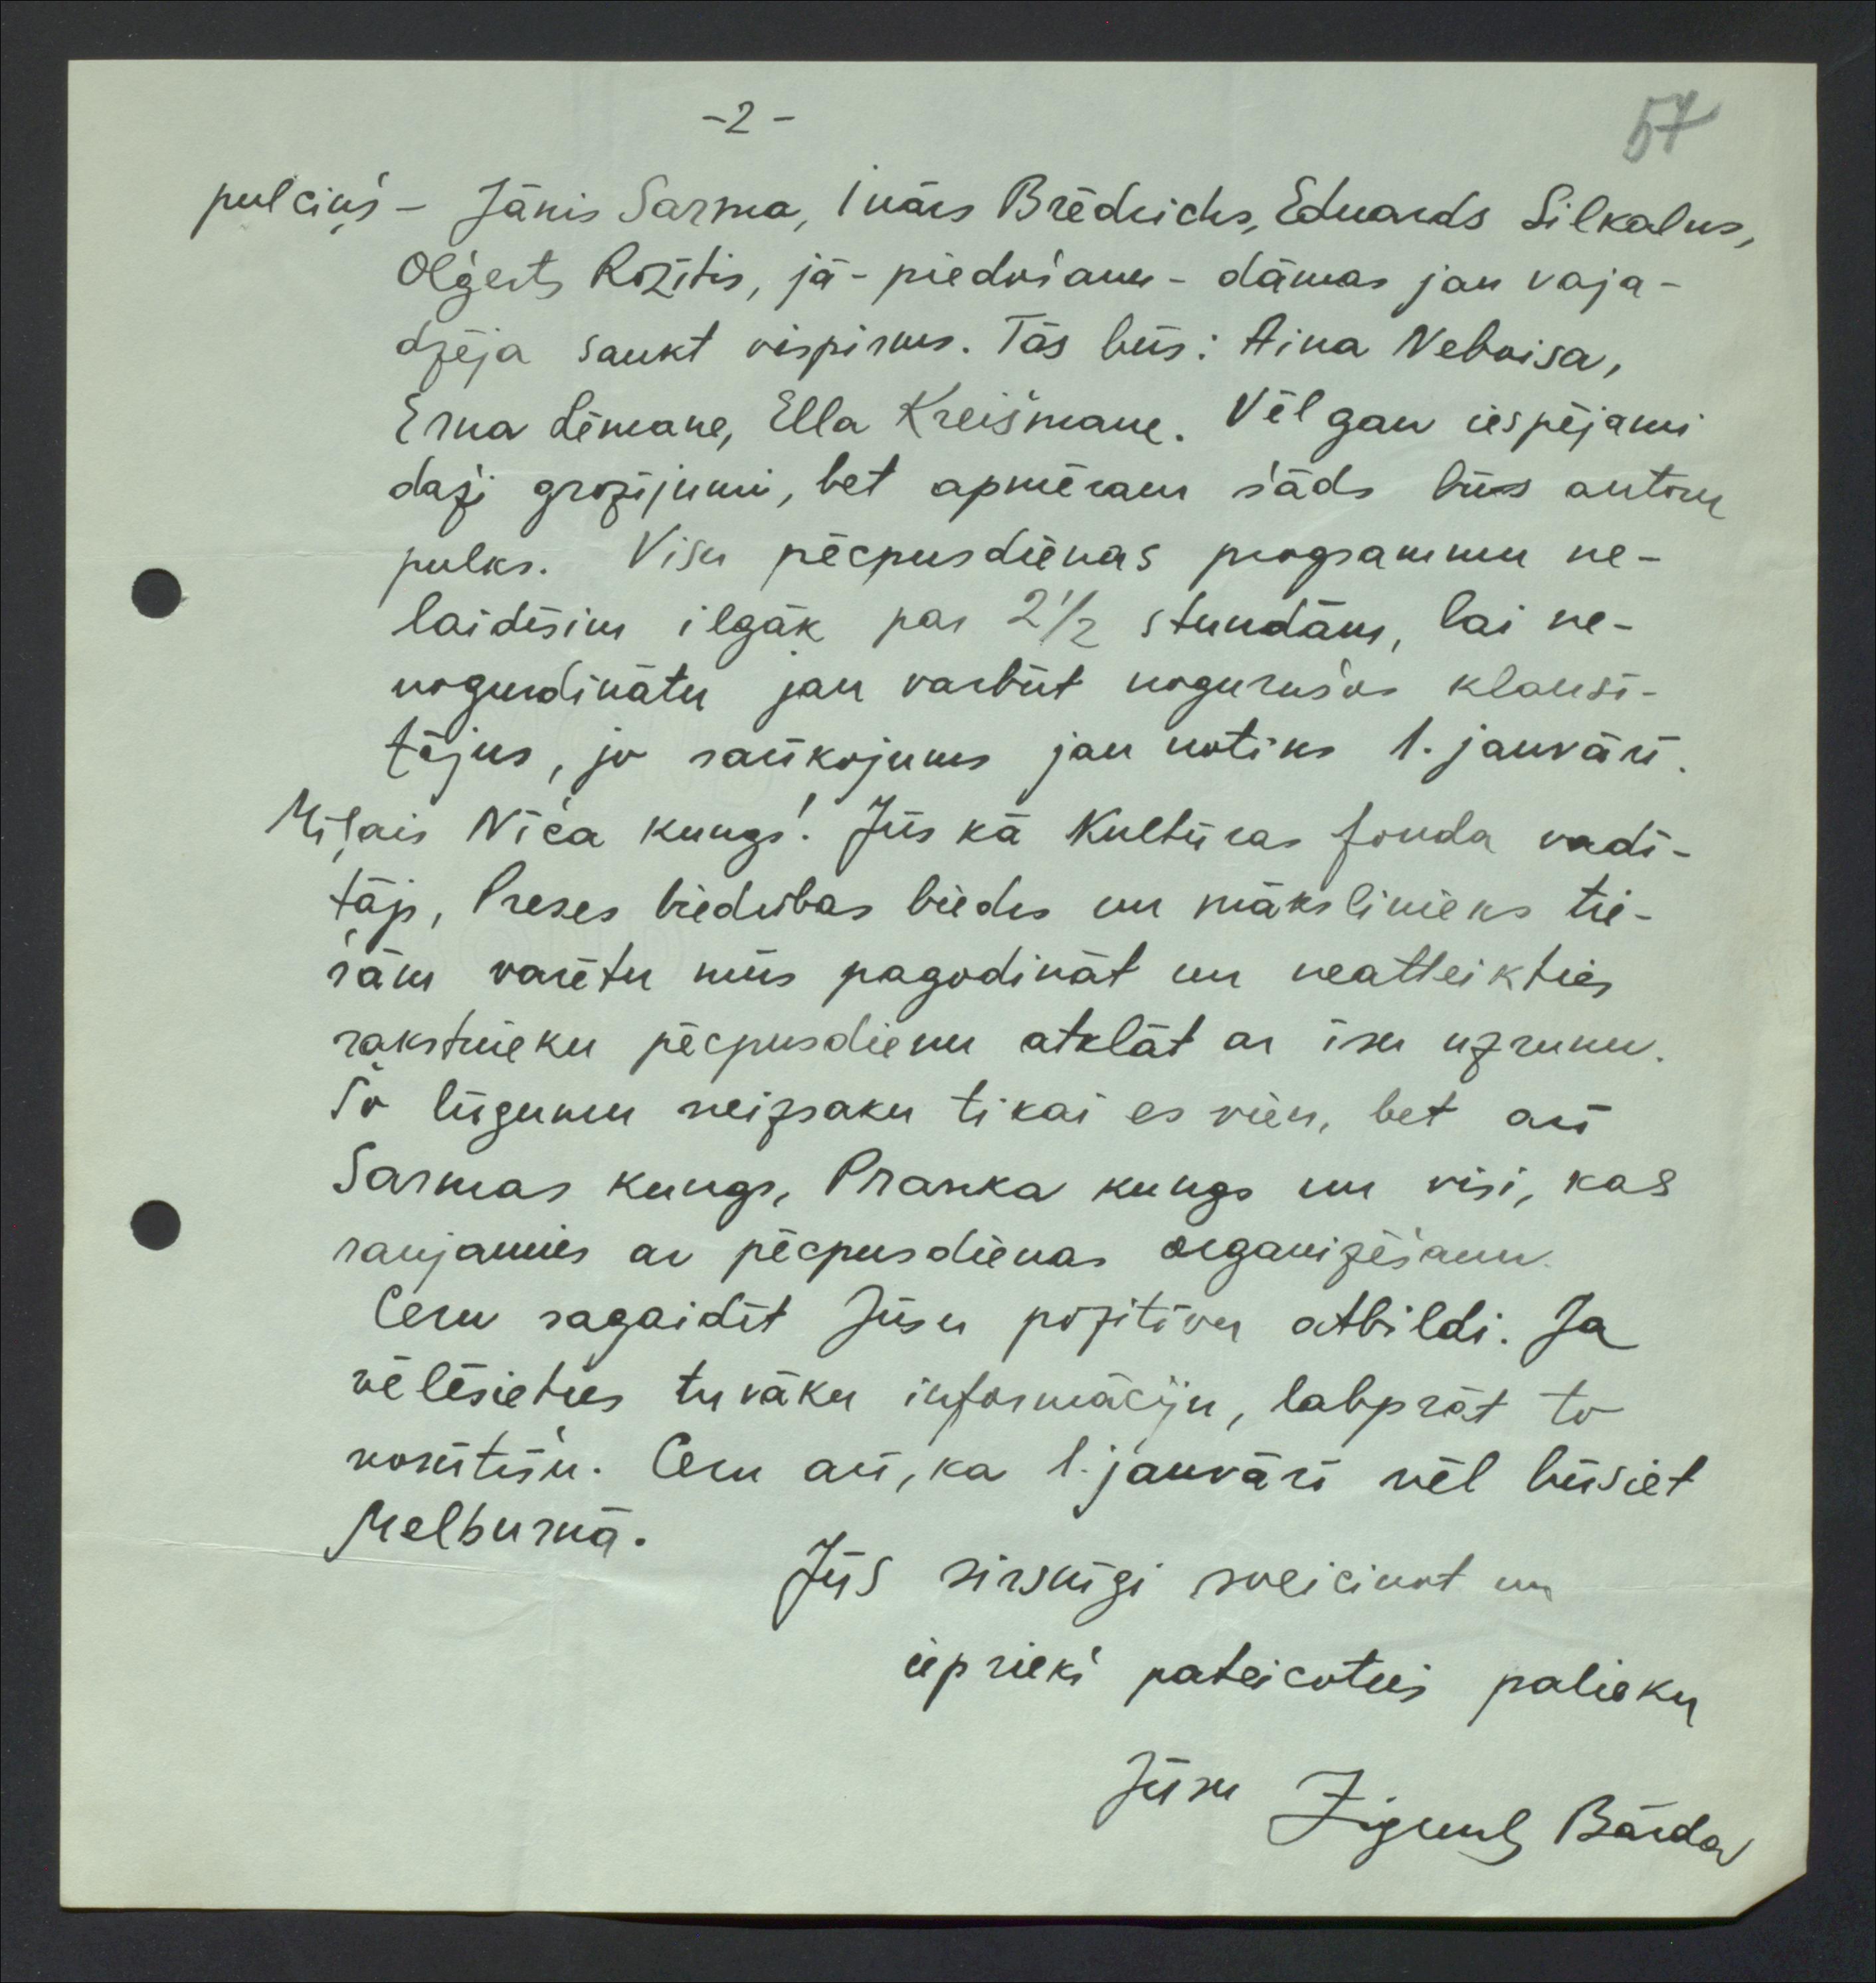 -2-
57
pulciņš - Jānis Sarma, Inārs Brēdrichs, Eduards Silkalns,
Oļģerts Rozītis, jā - piedošanu - dāmas jau vaja-
dzēja saukt vispirms. Tās būs: Aina Neboisa,
Erna Lēmane, Ella Kreišmane. Vēl gan iespējami
daži grozījumi, bet apmēram šāds būs autoru
pulks. Visu pēcpusdienas programmu ne-
laidīsim ilgāk par 2 1/2 stundām, lai ne-
nogurdinātu jau varbūt nogurušos klausī-
tājus, jo sarīkojums jau notiks 1. janvārī.
Mīļais Nīča kungs! Jūs kā Kultūras fonda vadī-
tājs, Preses biedrības biedrs un mākslinieks tie-
šām varētu mūs pagodināt un neatteikties
rakstnieku pēcpusdienu atklāt ar īsu uzrunu.
Šo lūgumu neizsaku tikai es vien, bet arī
Sarmas kungs, Pranka kungs un visi, kas
raujamies ar pēcpusdienas organizēšanu.
Ceru sagaidīt Jūsu pozitīvu atbildi. Ja
vēlēsieties tuvāku informāciju, labprāt to
nosūtīšu. Ceru arī, ka 1. janvārī vēl būsiet
Melburnā.
Jūs sirsnīgi sveicinot un
iepriekš pateicoties palieku
Jūsu Zigurds Bārda